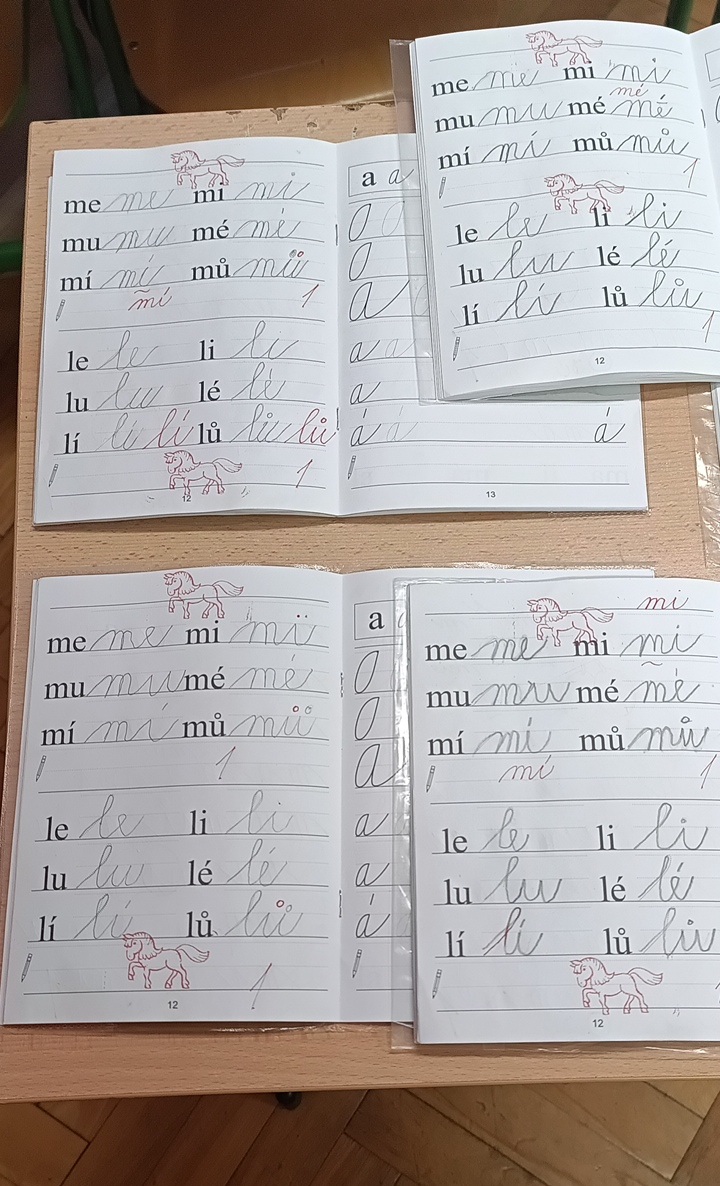 me me mi mi
mu mu mé mé
mí mí mů mů
mí 1
le le li li
lu lu lé lé
lí lí lí lů lů lů
1
12
a a
O O
O
A
a a
a
á á á
13
me me mi mi
mé
mu mu mé mé
mí mí mů mů
1
le le li li
lu lu lé lé
lí lí lů lů
1
12
me me mi mi
mu mu mé mé
mí mí mů mů
1
le le li li
lu lu lé lé
lí lí lů lů
1
12
a
O
O
A
a
a
á
mi
me me mi mi
mu mu mé mé
mí mí mů mů
mí 1
le le li li
lu lu lé lé
lí lí lů lů
12